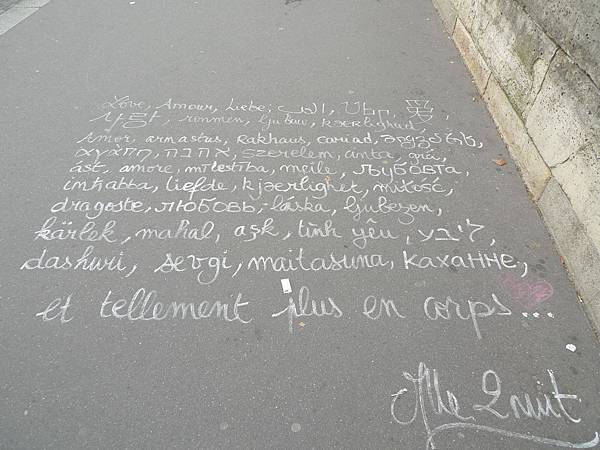 Love, Amour, Liebe, الحب, 爱,
사랑, ronmen, ljubav, kjærlighed
Amor, armastus, Rakhaus, cariad, სიყვარული,
αγάπη, אהבה, szerelem, cinta, grá,
ást, amore, mīlestība, meile, љубовта,
imħabba, liefde, kjærlighet, miłość,
dragoste, любовь, láska, ljubezen,
kärlek, mahal, aşk, tình yêu, ליבע,
dashuri, sevgi, maitasuna, каханне,
et tellement plus en corps...